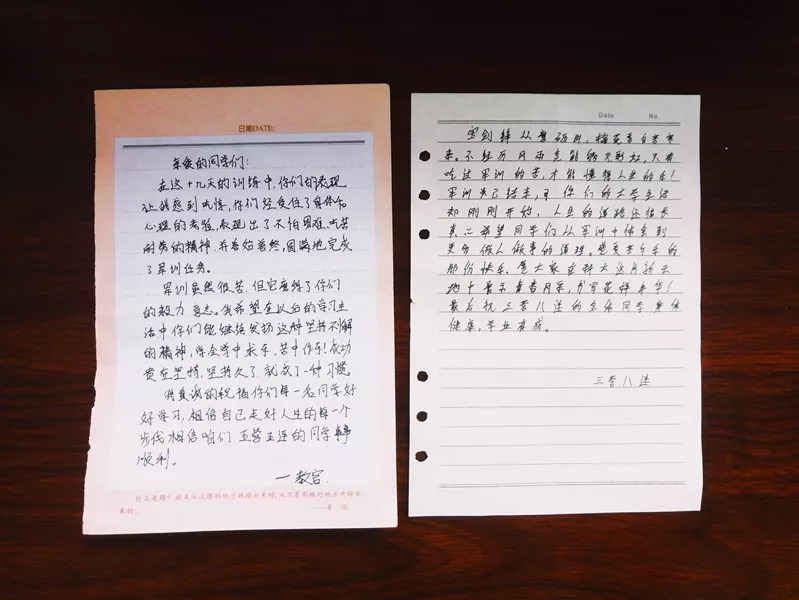 日期DATE:
亲爱的同学们:
在这十几天的训练中,你们的表现
让我感到吃惊,你们经受住了身体和
心理的考验,表现出了不怕困难、吃苦
耐劳的精神,并善始善终,圆满地完成
了军训任务。
军训虽然很苦,但它磨练了你们
的毅力、意志。我希望在以后的学习生
活中你们能继续发扬这种坚持不懈
的精神,学会学中求乐、苦中作乐!成功
贵在坚持,坚持久了,就成了一种习惯。
我真诚的祝福你们每一名同学好
好学习,相信自己走好人生的每一个
步伐,相信咱们五营五连的同学事事
顺利。
一教官
什么是路?就是从没路的地方践踏出来的,从只有荆棘的地方开辟出
来的。 ——鲁迅
Date No.
宝剑锋从磨砺出,梅花香自苦寒
来。不经历风雨怎能的见彩虹,只有
吃过军训的苦,才能懂得人生的乐!
军训夹已结束,但你们的大学生活
却刚刚开始,人生的道路还很长
真心希望同学们从军训中体会到
更多做人做事的道理。感受苦与乐的
那份快乐。愿大家在科大这片新天
地中展示青春风采,书写花样年华!
最后祝三营八连的全体同学身体
健康,学业有成。
三营八连